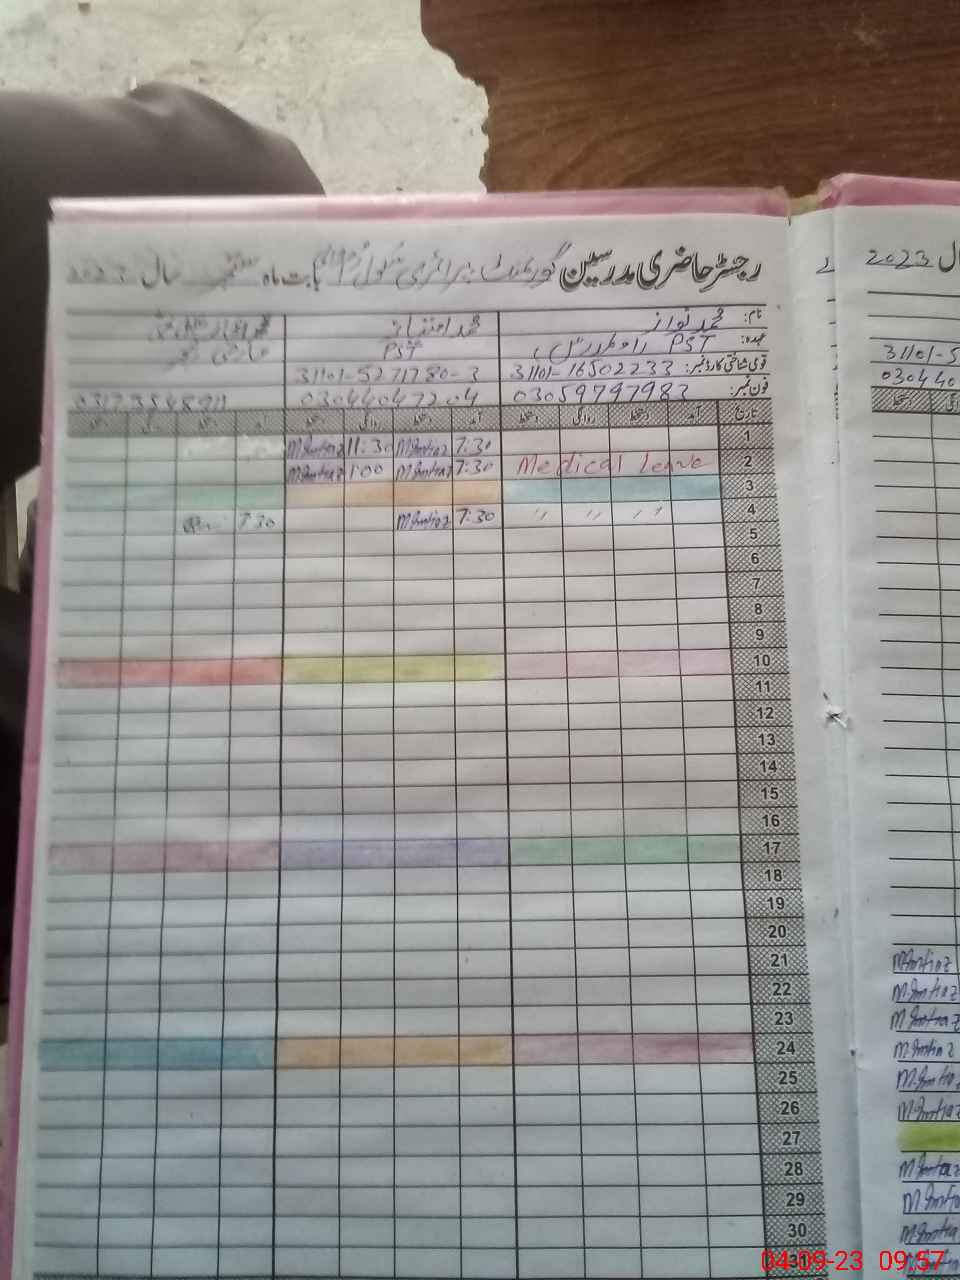 رجسٹر حاضری مدرسین گورنمنٹ پرائمری سکول بابت ماہ ستمبر سال 2023
2023
نام: محمد نواز محمد امتیاز
عہدہ: PST PST
قومی شناختی کارڈ نمبر: 31101-16502233 31101-5271780-3
31101-5
فون نمبر: 03059797983 03044047204 03173548911
030440
تاریخ آمد دستخط روانگی دستخط آمد دستخط روانگی دستخط آمد دستخط روانگی دستخط
1 7:30 M.Imtiaz 11:30 M.Imtiaz
2 Medical leave 7:30 M.Imtiaz 1:00 M.Imtiaz
3
4 〃 〃 〃 7:30 M.Imtiaz 7:30
5
6
7
8
9
10
11
12
13
14
15
16
17
18
19
20
21
M.Imtiaz
22
M.Imtiaz
23
M.Imtiaz
24
M.Imtiaz
25
M.Imtiaz
26
M.Imtiaz
27
28
M.Imtiaz
29
M.Imtiaz
30
M.Imtiaz
31
04-09-23 09:57